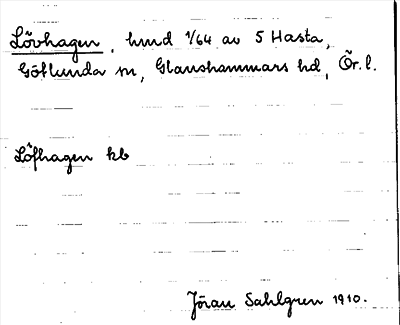 Lövhagen, hmd 1/64 av 5 Hasta,
Götlunda sn, Glanshammars hd, Ör. l.
Löfhagen kb
Jöran Sahlgren 1910.